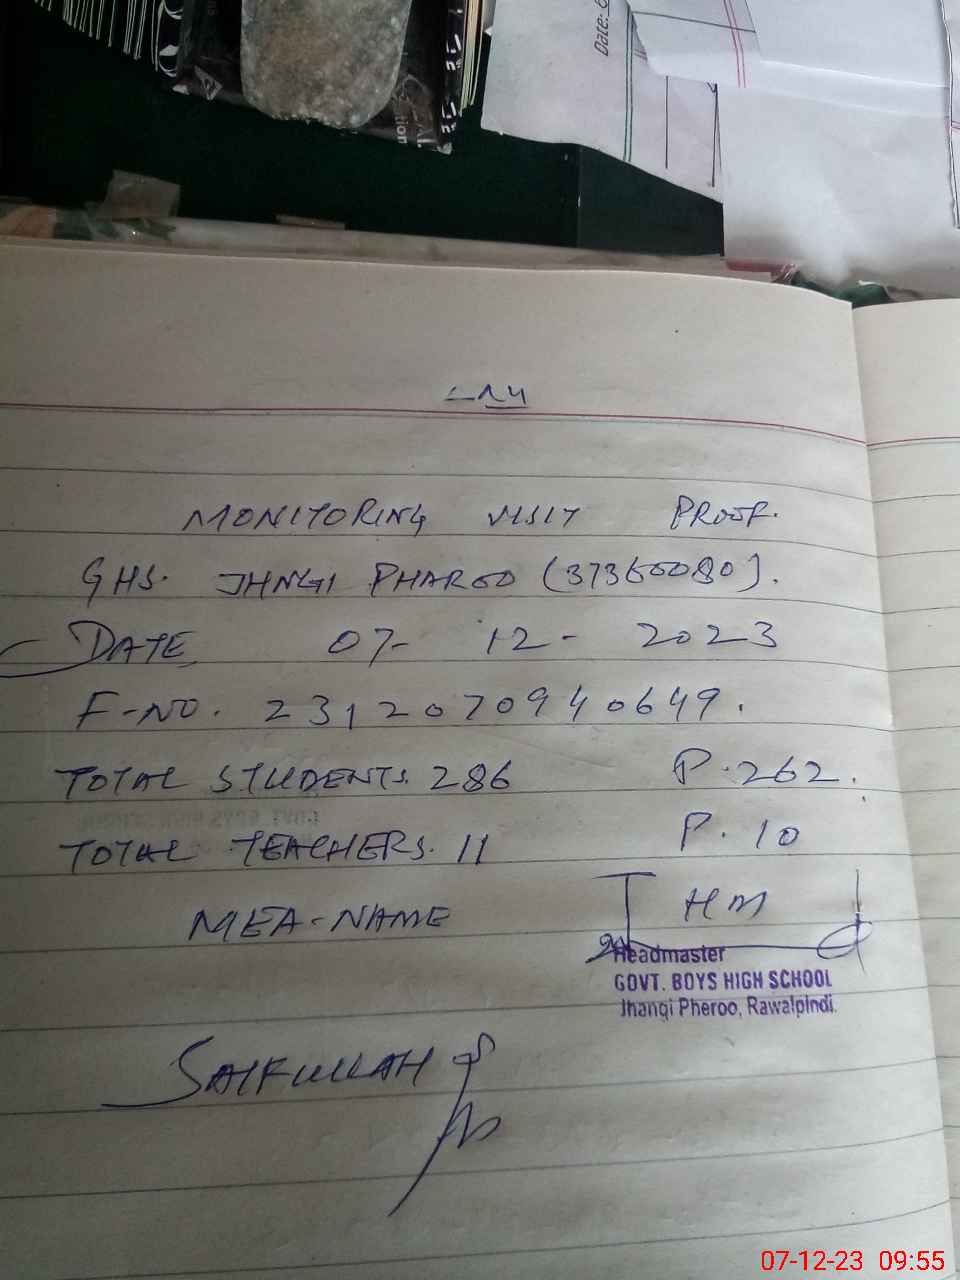 Date: 6
MONITORING VISIT PROOF.
GHS. JHNGI PHAROO (37360080).
DATE 07- 12- 2023
F-NO. 2312070940649.
TOTAL STUDENTS. 286 P. 262.
TOTAL TEACHERS. 11 P. 10
MEA-NAME HM
Headmaster
GOVT. BOYS HIGH SCHOOL
Jhangi Pheroo, Rawalpindi.
SAIFULLAH
07-12-23 09:55